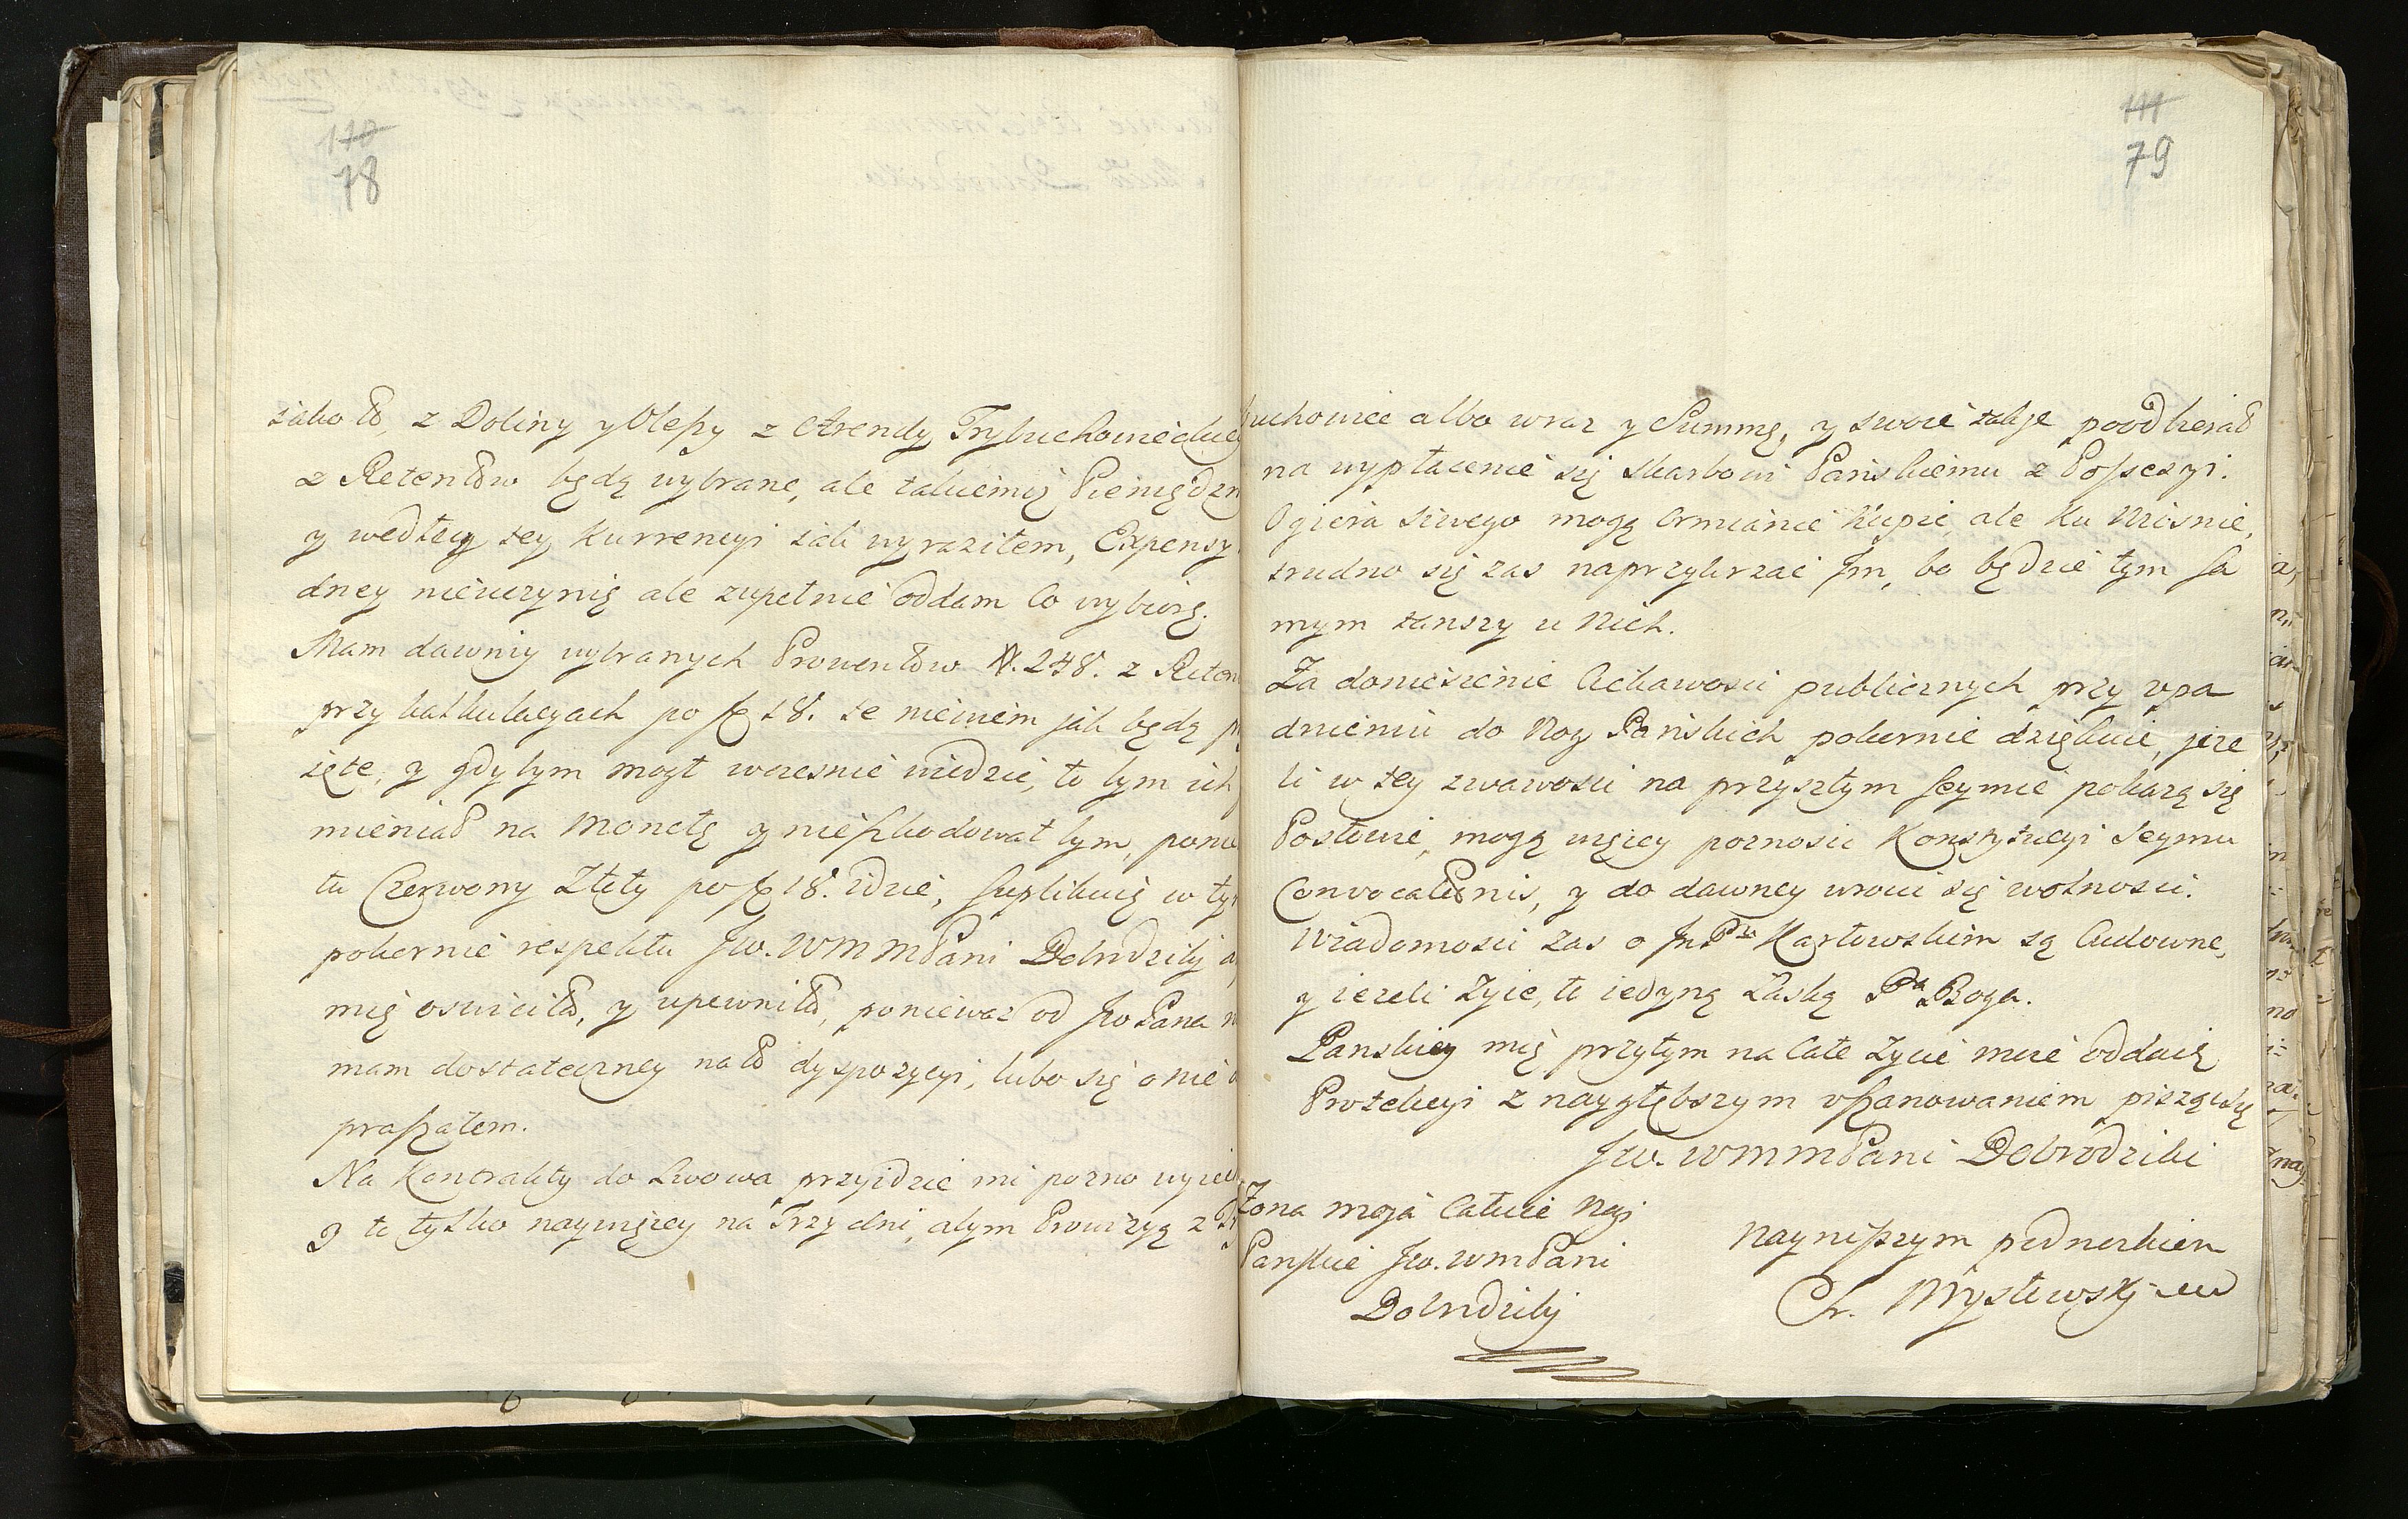 110
78
iako to, z Doliny y Olesy z Arendy Trybuchowieckiey
z Retentow będą wybrane, ale takiemiż Pieniędzm
y według tey kurrencyi iak wyraziłem, Expensy
dney nieuczynię ale zupełnie oddam co wybiorę.
Mam dawniy wybranych Prowentow #. 248. z Reten
przy kalkulacyach po fl 18. te niewiem jak będą p
ięte, y gdybym mogł wczesnie wiedzieć, to bym ich
mieniał na Monetę y nieszkodował bym, poni
tu Czerwony Złoty po fl 18. idzie, supplikuię w ty
pokornie respektu Jw. WMMPani Dobrodziki, a
mię oswieciła, y upewniła, poniewaz od Jw Pana n
mam dostateczney na to dyspozycyi, lubo się o nie
praszałem.
Na Kontrakty do Lwowa przyidzie mi pozno wyie
y to tylko naywięcy na Trzy dni, abym Prowizyą z Try
111
79
buchowiec albo wraz y Summę, y swoie zasłże poodbierał
na wypłacenie się Skarbowi Pańskiemu z Possesyi.
Ogiera siwego mogą Ormianie kupić, ale ku Wiosnie,
trudno się zas naprzykrzać Jm, bo będzie tym sa
mym tanszy u Nich.
Za doniesienie Ciekawosci publicznych przy upa
dnieniu do Nog Pańskich pokornie dziękuie, jeze
li w tey zwawosci na przyszłym Seymie pokazą się
Posłowie, mogą więcy poznosic Konstytucyi Seymu
Convocationis, y do dawney wroci się wolnosci.
Wiadomosci zas o Jm Pu Karłowskim są Cudowne,
y iezeli zyie, to iedyną Łaską Pa Boga.
Panskiey mię przytym na Całe Zycie moie oddaię
Protekcyi z naygłębszym uszanowaniem piszącsię
Jw. WMMPani Dobrodziki
Zona moja Całuie Nogi
Panskie Jw. WMPani
Dobrodziki
Nayniszszym podnozkiem
Ch. Mysłowsky mp